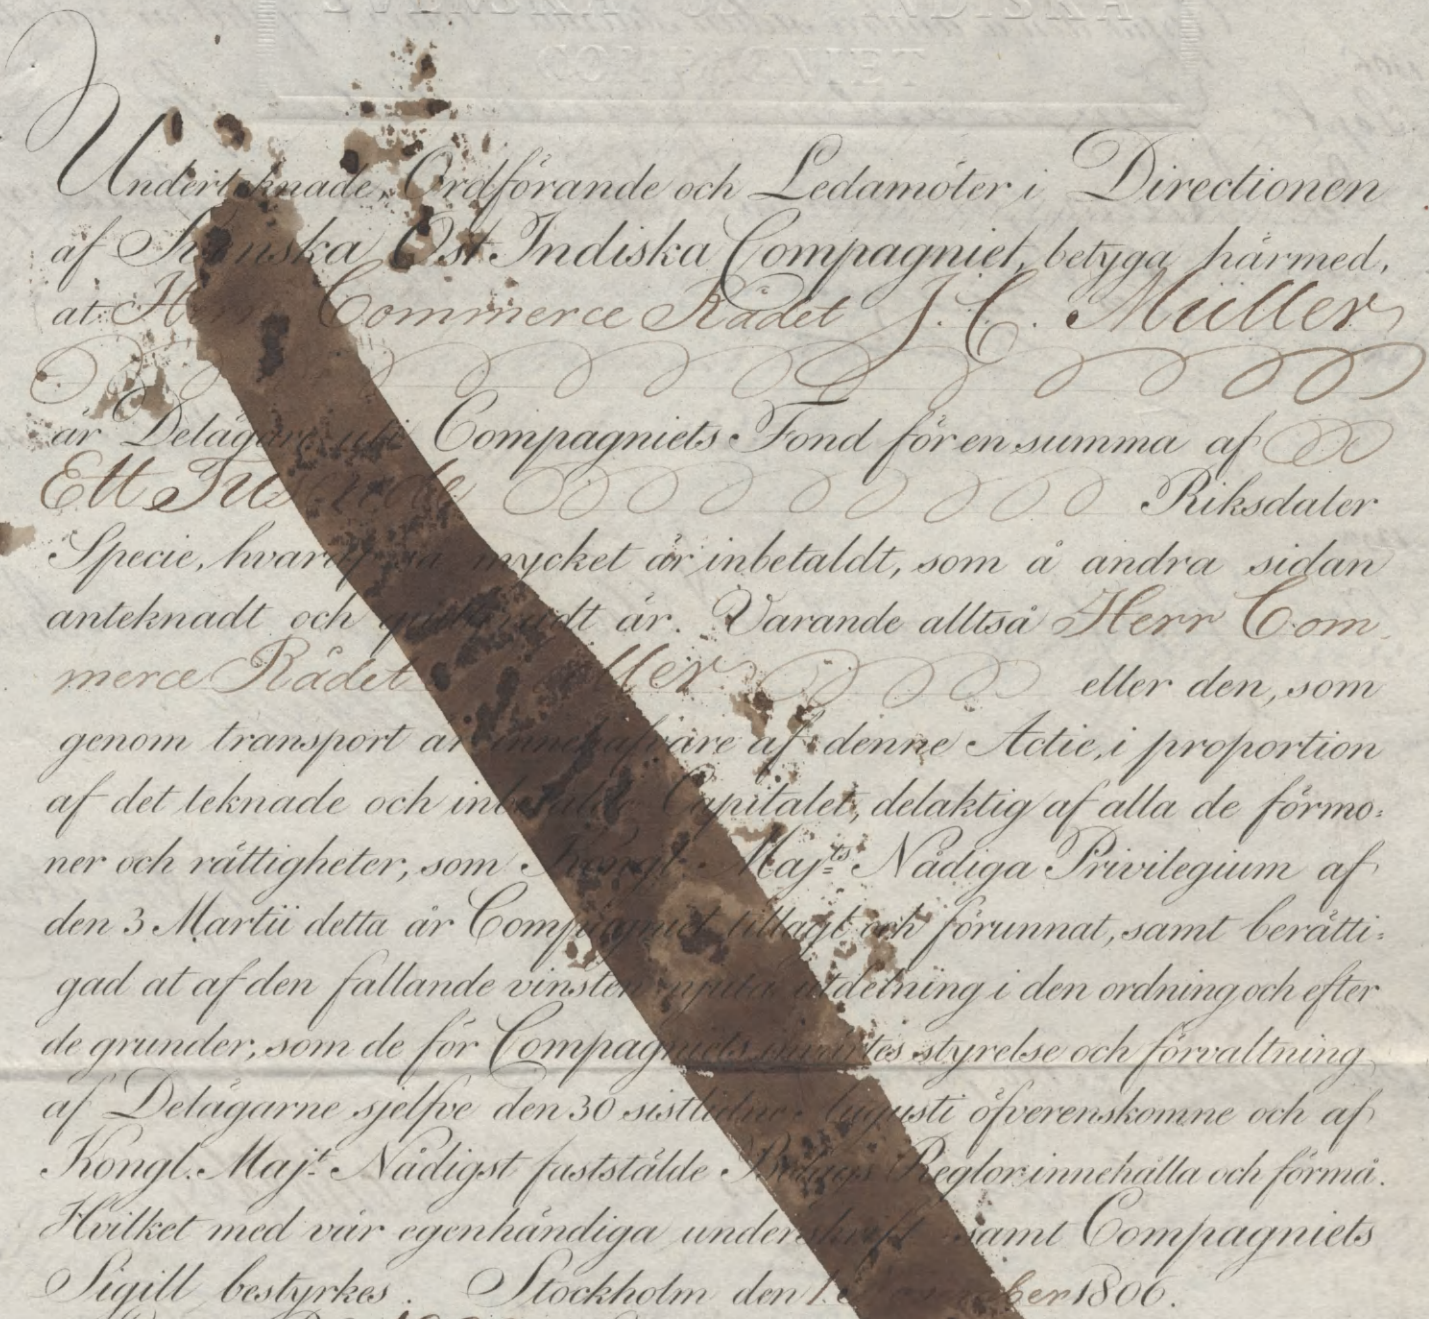 Underteknade, Ordförande och Ledamöter i Directionen
af Svenska Ost Indiska Compagniet, betyga härmed,
at Herr Commerce Rådet J. C. Müller
är Delägare uti Compagniets Fond för en summa af
Ett Tusende Riksdaler
Specie, hvaraf så mycket är inbetaldt, som å andra sidan
anteknadt och är. Varande alltså Herr Com
merce Rådet Müller eller den, som
genom transport är innehafvare af denne Actie, i proportion
af det teknade och inbetalde Capitalet, delaktig af alla de förmo:
ner och rättigheter, som Kongl. Maj:ts Nådiga Privilegium af
den 3 Martii detta år Compagniet tillagt och förunnat, samt berätti:
gad at af den fallande vinsten njuta utdelning i den ordning och efter
de grunder, som de för Compagniets invärtes styrelse och förvaltning
af Delägarne sjelfve den 30 sistledne Augusti öfverenskomne och af
Kongl. Maj:t Nådigst fastställde Bolags Reglor innehålla och förmå.
Hvilket med vår egenhändiga underskrift samt Compagniets
Sigill bestyrkes. Stockholm den 1. November 1806.